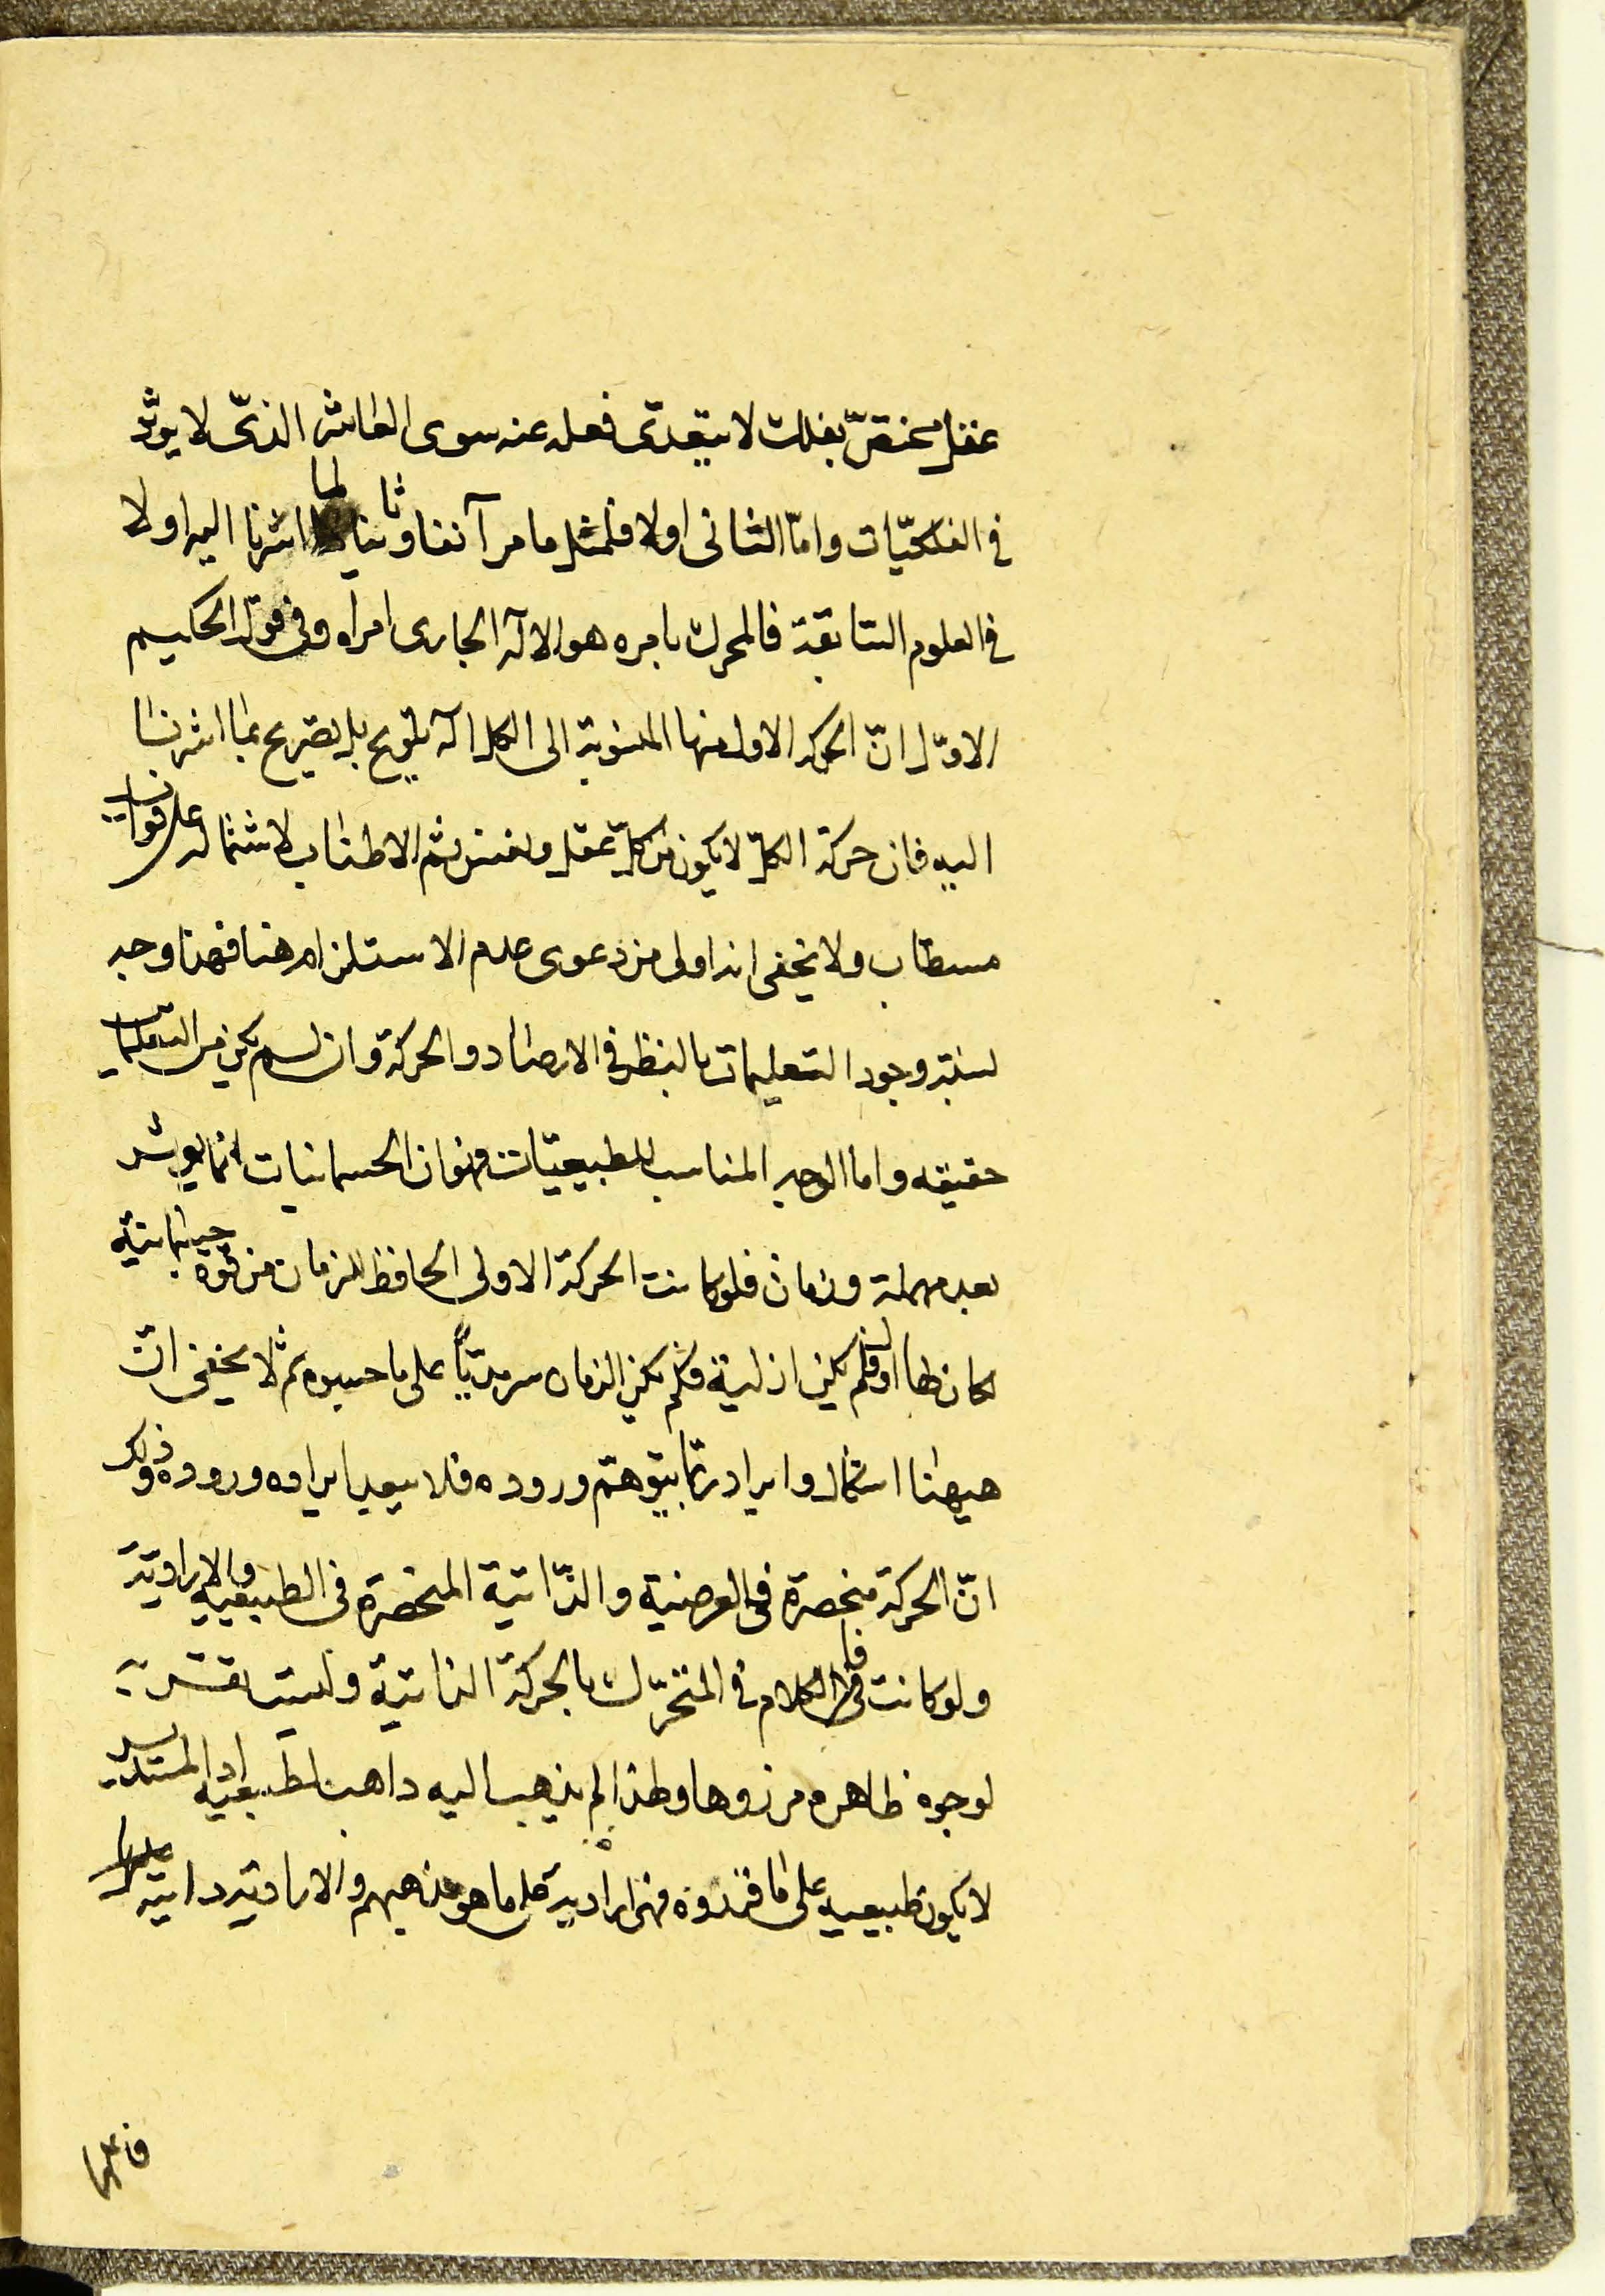 عقل مختصّ بفلك لا يتعدّى فعله عنه سوى العاشر الذّى لا يوثّر
فى الفلكيّات وامّا الثانى اولا فلمثل ما مر آنفا وثانيا لما اشرنا اليه اولا
فى العلوم السّابقة فالمحرك بامره هو الاله الجارى امراه وفى قول الحكيم
الاوّل انّ الحركه الاولى منها المنسوبة الى الكل اله تلويح بل تصريح بما اشرنا
اليه فان حركة الكلّ لا يكون من كلّ عقل ونفس ثم الاطناب لاشتماله على فوايد
مستطاب ولا يخفى انه اولى من دعوى عدم الاستلزام هنا فهذا وجه
لنسبة وجود التعليمات بالنظر فى الارصاد والحركة وان لم يكن من التعليمات
حقيقه واما الوجه المناسب للطبيعيّات فهو ان الجسمانيات انما يوثر
بعد مهملة وزمان فلو كانت الحركة الاولى الحافظ للزمان من قوة جسمانيّه
لكان لها اول فلم يكن ازلية فلم يكن الزمان سرمديّاً على ما حسبوه ثم لا يخفى انّ
هيهنا اشكال وايراد ربّما يتوهّم وروده فلا بعد ايراده ورودہ وذلك
انّ الحركة منحصرة فى العرضية والذّاتية المنحصرة فى الطبيعيه والاراديّة
ولو كانت فالكلام فى المتحرّك بالحركة الذاتيّة وليست بقسريّه
لوجوه ظاهره مرزوها ولهذا لم يذهب اليه ذاهب لطبيعيه اذ المستدير
لا يكون طبيعيه على ما قرّروه فهى اراديّة على ما هو مذهبهم والاراديّه ذاتيّه
فاعلها